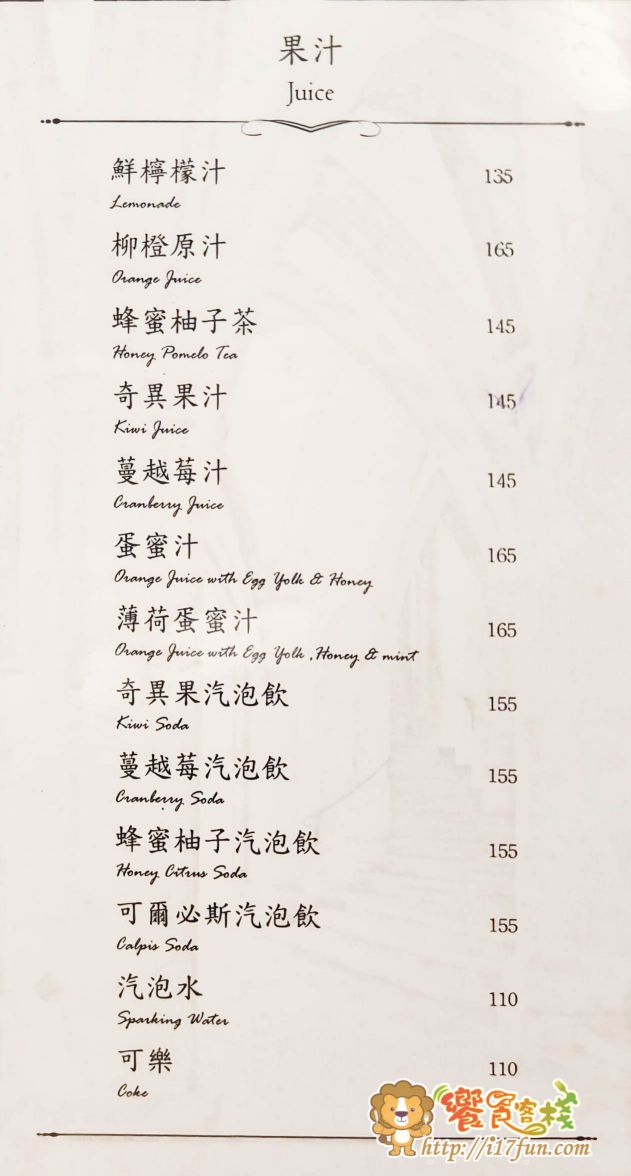 果汁
Juice
鮮檸檬汁 135
Lemonade
柳橙原汁 165
Orange Juice
蜂蜜柚子茶 145
Honey Pomelo Tea
奇異果汁 145
Kiwi Juice
蔓越莓汁 145
Cranberry Juice
蛋蜜汁 165
Orange Juice with Egg Yolk & Honey
薄荷蛋蜜汁 165
Orange Juice with Egg Yolk ,Honey & mint
奇異果汽泡飲 155
Kiwi Soda
蔓越莓汽泡飲 155
Cranberry Soda
蜂蜜柚子汽泡飲 155
Honey Citrus Soda
可爾必斯汽泡飲 155
Calpis Soda
汽泡水 110
Sparking Water
可樂 110
Coke
饗食客棧
http://i17fun.com